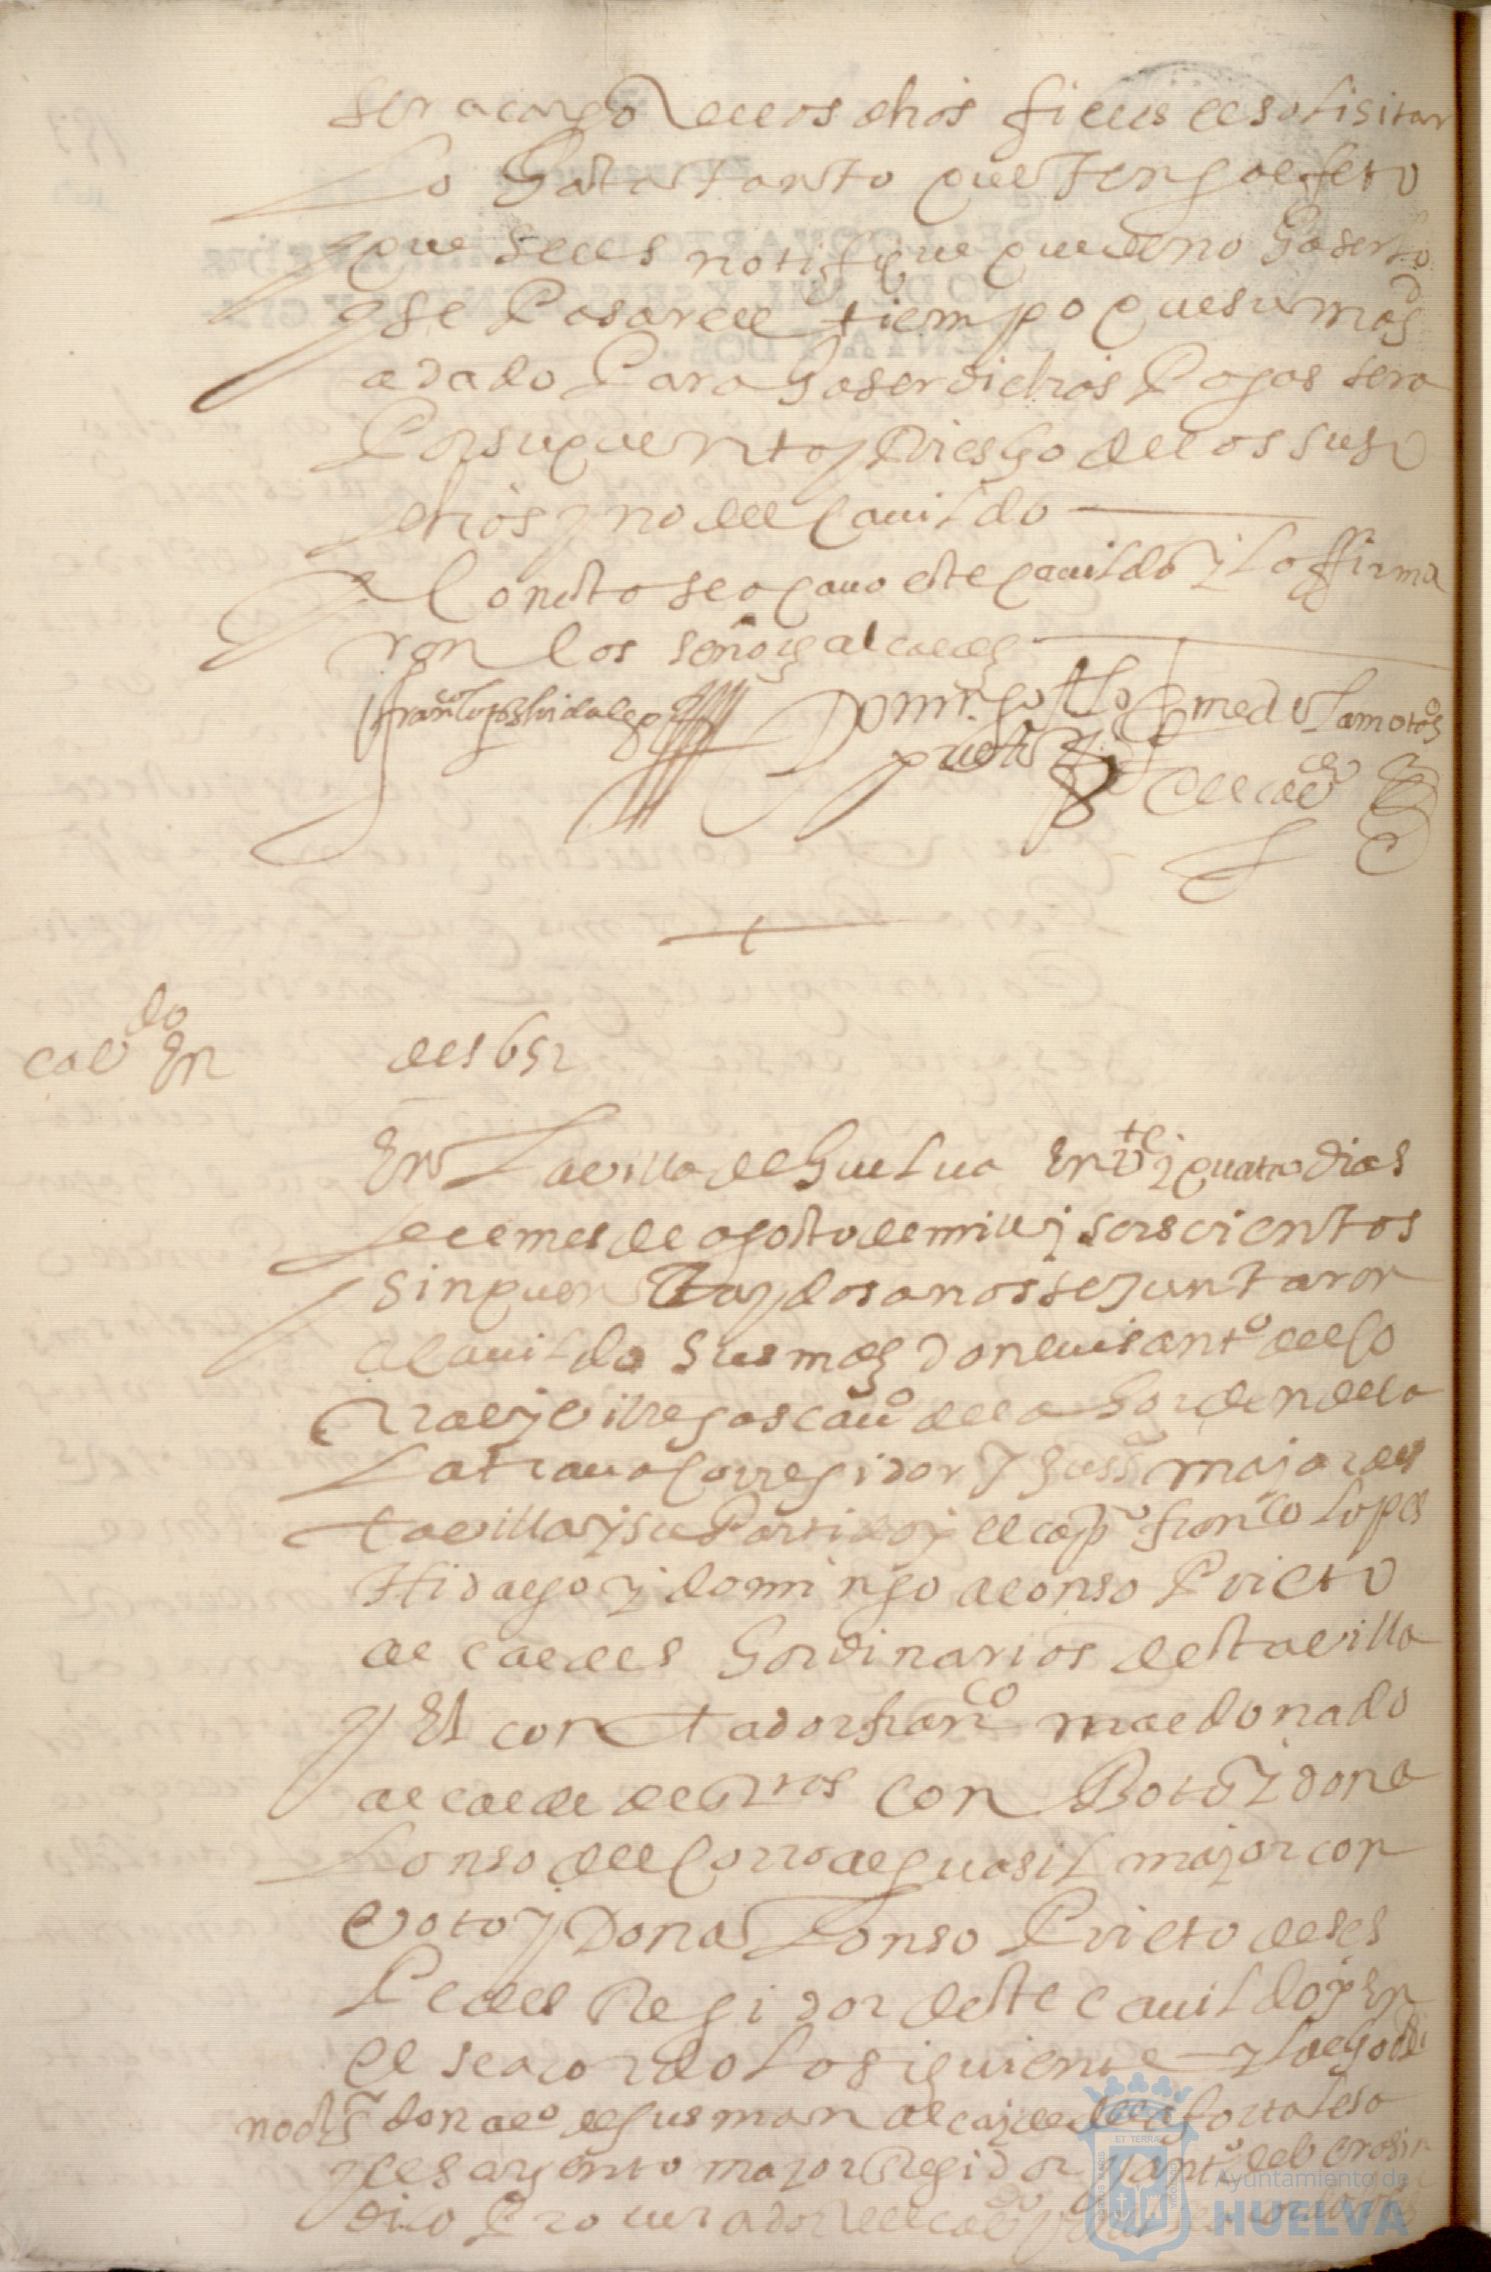 ser a cargo de los dhos fieles el solisitar
lo hasta tanto que tenga efeto
y que se les notifique que de no haserlo
y se pasare el tiempo que sus mds
a dado para haser dichos pagos sera
por su quenta y Riesgo de los suso
dhos y no del cauildo
Con esto se acauo este cauildo y lo ffirma
ron los señores alcaldes
franco lopes hidalgo Domingo Alo
prieto
cab do En
de 1652
En la villa de Huelua En vte y quatro dias
del mes de agosto de mill y seiscientos
sinquenta y dos anos se juntaron
a Cauildo sus mds don luis anto del Co
rral y villegas cauo de la horden de la
Latraua Corregidor y Just major des
ta villa y su Partido y el capn franco lopes
Hidalgo y domingo alonso Prieto
alcaldes hordinarios desta villa
y El contador franco maldonado
alcalde de con Boto y don a
Lonso del Corro alguasil major con
voto y Don a Lonso Prieto de ses
Pedes Regidor deste cauildo y En
el se acordo lo siguiente
don alo de gusman alcayde de la fortalesa
y el sargento major Regidor y anto
dico Procurador del
Ayuntamiento de
HUELVA